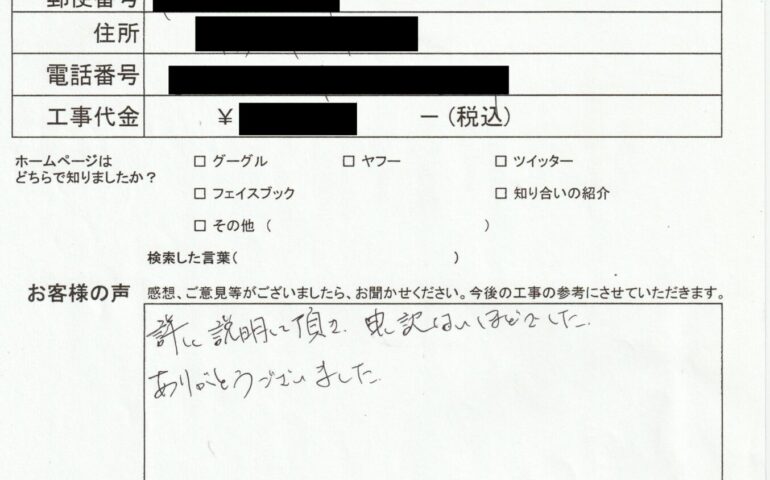 郵便番号
住所
電話番号
工事代金 ¥ ー(税込)
ホームページは □ グーグル □ ヤフー □ ツイッター
どちらで知りましたか?
□ フェイスブック □ 知り合いの紹介
□ その他 ( )
検索した言葉( )
お客様の声 感想、ご意見等がございましたら、お聞かせください。今後の工事の参考にさせていただきます。
詳しく説明して頂き、申し訳ないほどでした。
ありがとうございました。